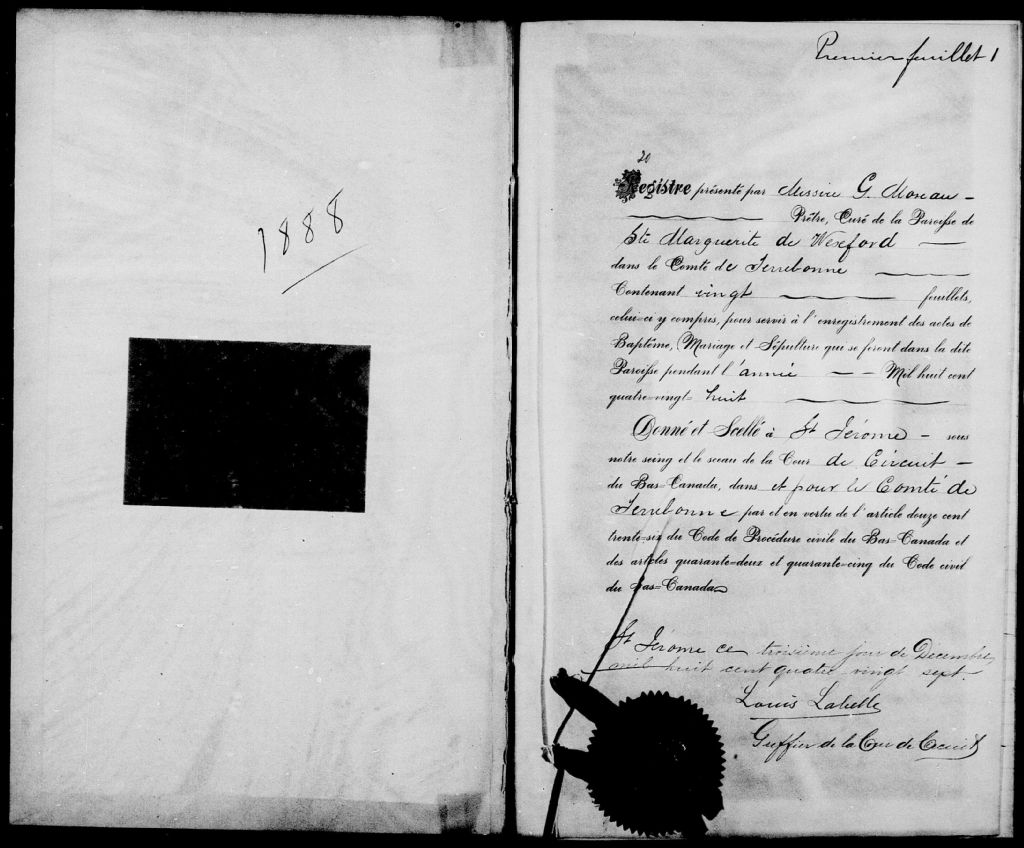 1888
Premier feuillet 1
20
Registre présenté par Messire G. Moreau –
Prêtre, Curé de la Paroisse de
Ste Marguerite de Wexford
dans le Comté de Terrebonne
Contenant vingt feuillets,
celui-ci y compris, pour servir à l'enregistrement des actes de
Baptême, Mariage et Sépulture qui se feront dans la dite
Paroisse pendant l'année – – Mil huit cent
quatre-vingt- huit
Donné et Scellé à St Jérome – sous
notre seing et le sceau de la Cour de Circuit –
du Bas-Canada, dans et pour le Comté de
Terrebonne par et en vertu de l'article douze cent
trente-six du Code de Procédure civile du Bas-Canada et
des articles quarante-deux et quarante-cinq du Code civil
du Bas-Canada
St Jérome ce troisième jour de Décembre
mil huit cent quatre vingt sept.
Louis Labelle
Greffier de la Cour de Circuit